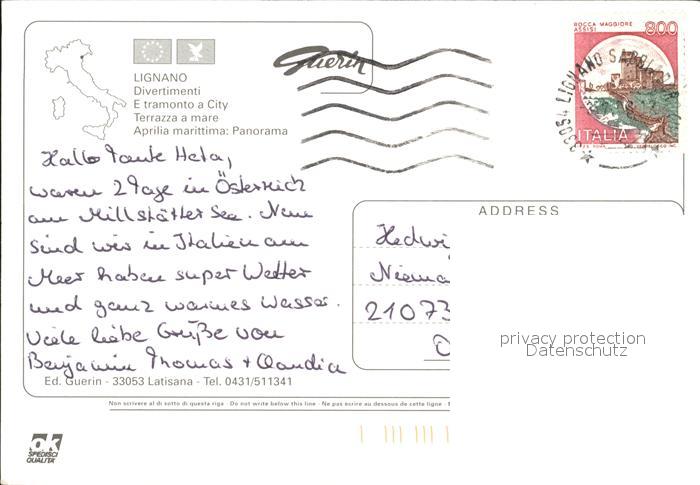 ROCCA MAGGIORE
ASSISI
800
ITALIA
33054 LIGNANO SABBIADORO
Guerin
LIGNANO
Divertimenti
E tramonto a City
Terrazza a mare
Aprilia marittima: Panorama
Hallo Tante Heta,
waren 2 Tage in Österreich
am Millstätter See. Nun
sind wir in Italien am
Meer haben super Wetter
und ganz warmes Wasser.
Viele liebe Grüße von
Benjamin Thomas + Claudia
ADDRESS
Hedwi
Niema
21073
privacy protection
Datenschutz
Ed. Guerin - 33053 Latisana - Tel. 0431/511341
Non scrivere al di sotto di questa riga - Do not write below this line - Ne pas écrire au dessous de cette ligne -
ok
SPEDISCI
QUALITÀ